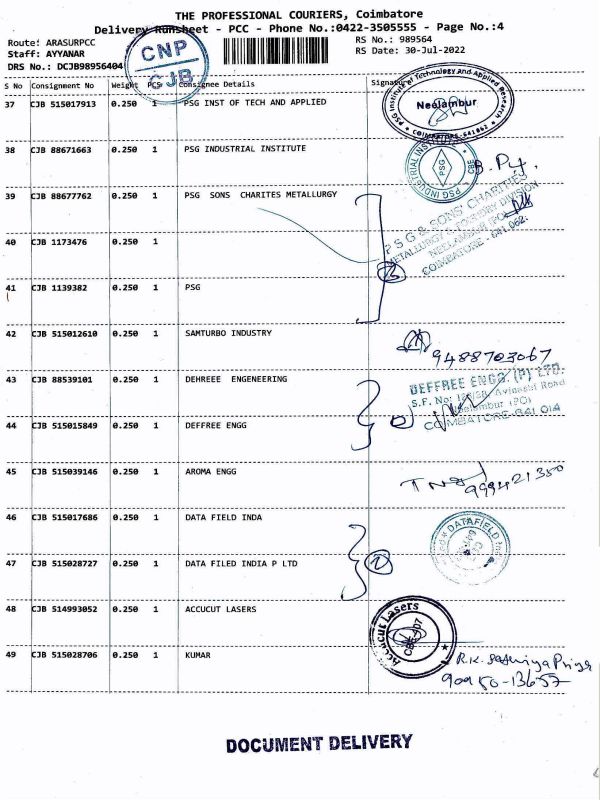 THE PROFESSIONAL COURIERS, Coimbatore
Delivery Runsheet - PCC - Phone No.:0422-3505555 - Page No.:4
Route: ARASURPCC RS No.: 989564
Staff: AYYANAR RS Date: 30-Jul-2022
DRS No.: DCJB98956404
CNP
CJB
S No Consignment No Weight PCS Consignee Details Signature
37 CJB 515017913 0.250 1 PSG INST OF TECH AND APPLIED
PSG Institute of Technology and Applied Research
Neelambur
COIMBATORE-641062
38 CJB 88671663 0.250 1 PSG INDUSTRIAL INSTITUTE
PSG INDUSTRIAL INSTITUTE
PSG
CBE
39 CJB 88677762 0.250 1 PSG SONS CHARITES METALLURGY
P S G & SONS' CHARITIES
METALLURGY & FOUNDRY DIVISION
NEELAMBUR (PO)
COIMBATORE - 641 062.
40 CJB 1173476 0.250 1
41 CJB 1139382 0.250 1 PSG
3
42 CJB 515012610 0.250 1 SAMTURBO INDUSTRY
9488703067
43 CJB 88539101 0.250 1 DEHREEE ENGENEERING
DEFFREE ENGG. (P) LTD.
Avinashi Road
Neelambur (PO)
COIMBATORE-641 014
44 CJB 515015849 0.250 1 DEFFREE ENGG
45 CJB 515039146 0.250 1 AROMA ENGG
46 CJB 515017686 0.250 1 DATA FIELD INDA
DATAFIELD
47 CJB 515028727 0.250 1 DATA FILED INDIA P LTD
48 CJB 514993052 0.250 1 ACCUCUT LASERS
Accucut Lasers
49 CJB 515028706 0.250 1 KUMAR
R.K. Sathiya Priya
90950-13657
DOCUMENT DELIVERY